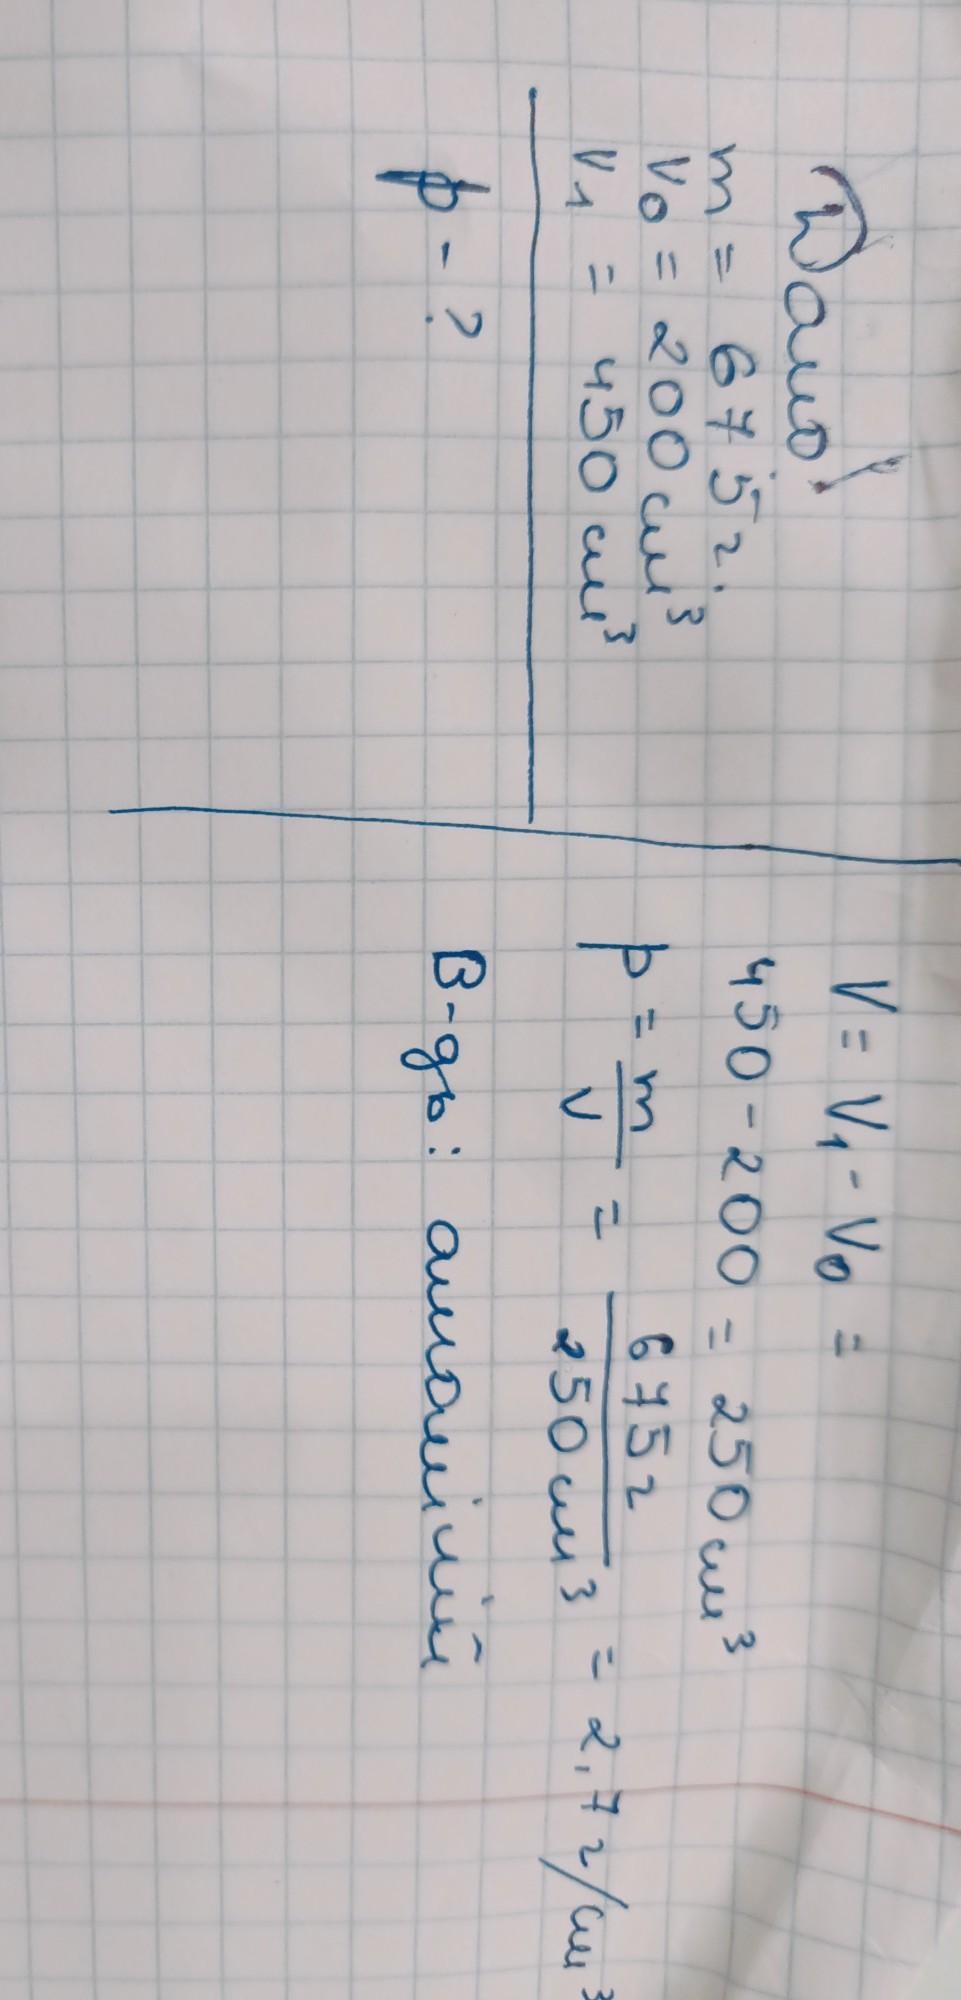 Дано!
m = 675 г.
V₀ = 200 см³
V₁ = 450 см³
ρ - ?
V = V₁ - V₀ =
450 - 200 = 250 см³
ρ = m/V = 675 г/250 см³ = 2,7 г/см³
В-дь: алюміній